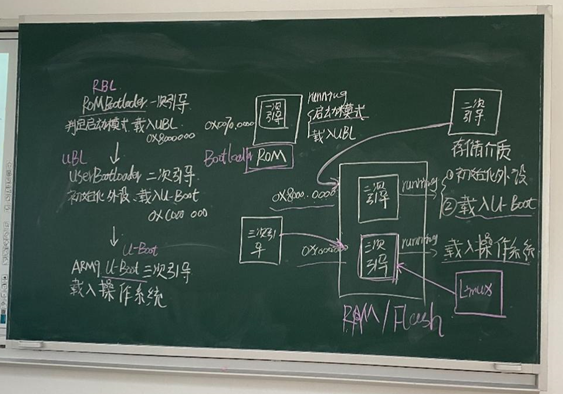 RBL
ROMBootloader 一次引导
判定启动模式,载入UBL
0x8000000
UBL
UserBootloader 二次引导
初始化外设、载入U-Boot
U-Boot
ARM9 U-Boot 三次引导
载入操作系统
引导
running
启动模式
载入UBL
Bootloader ROM
二次
引导
存储介质
①初始化外设
②载入U-Boot
0x8000.0000
二次
引导
running
三次引
导
三次
引导
running
载入操作系统
Linux
RAM/Flash